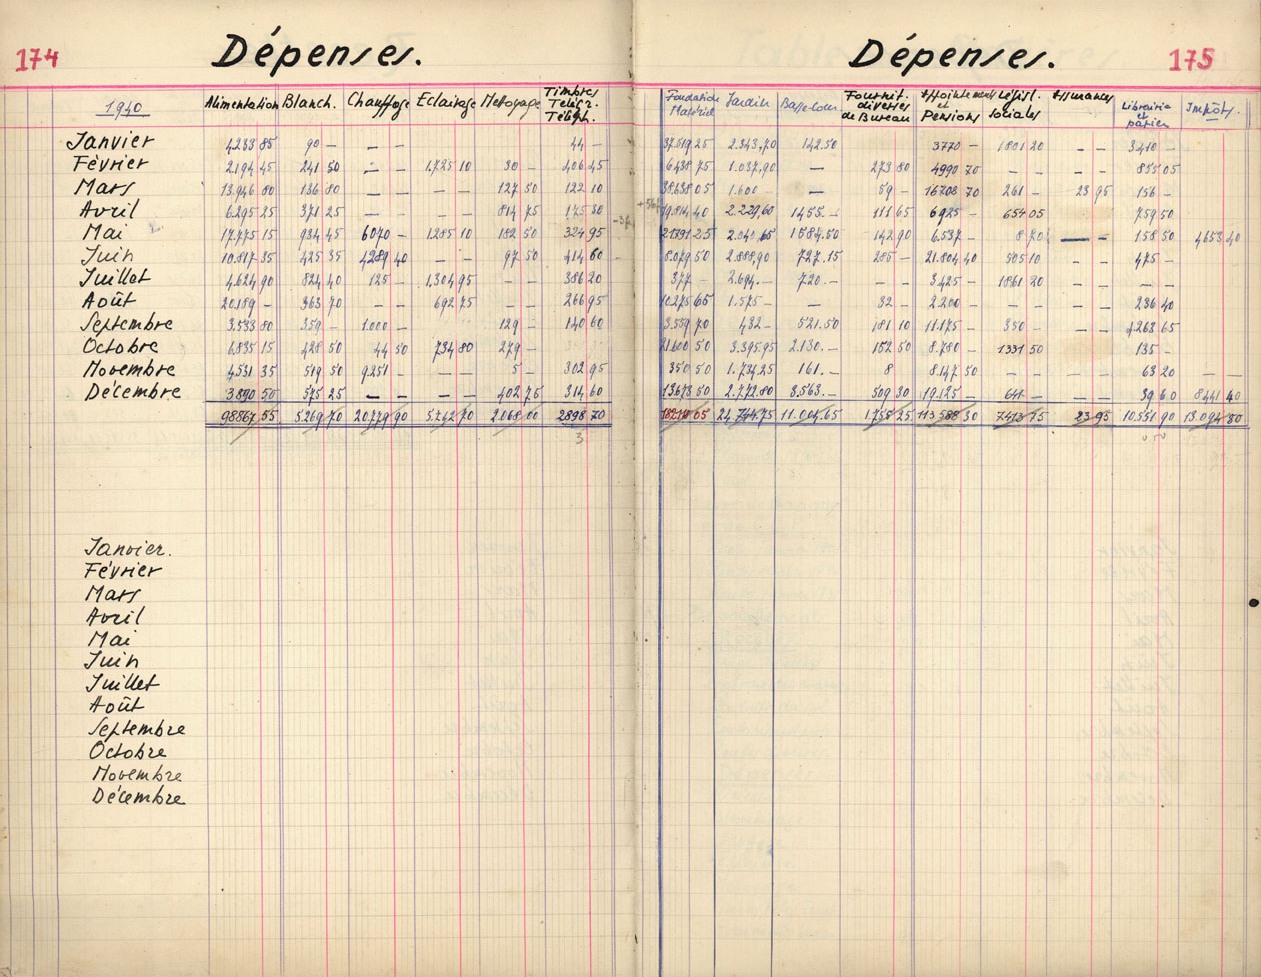 174 Dépenses. Dépenses. 175
1940 Alimentation Blanch. Chauffage Eclairage Nettoyage Timbres Télégr. Téléph. Fondation Matériel Jardin Basse-Cour Fournit. diverses de Bureau Appointements et Pensions Législ. sociales Assurances Librairie et papier Impôts.
Janvier 4233 85 90 — — — — 44 — 2.343,70 142.50 3770 — 1801 20 — — 3410 —
Février 2194 45 241 50 — — 1.725 10 30 — 406 45 6438 75 1.037,90 — 273 80 4990 70 — — — — 855 05
Mars 13.946 80 136 80 — — — 127 50 122 10 38638 05 1.600 — — 59 — 16708 70 261 — 23 95 156 —
Avril 6.295 25 371 25 — — — 814 75 175 30 19.814 40 2.229,60 1455.— 111 65 6925 — 654 05 — — 759 50
Mai 17.775 15 934 45 6070 — 1285 10 182 50 324 95 21391 25 2.040,65 1584.50 142 90 6.537 — 8 70 — — 158 50 4653 40
Juin 10.817 35 425 35 4289 40 — — 97 50 414 60 8029 50 2.888,90 727.15 285 — 21.804 40 505 10 — — 475 —
Juillet 4.624 90 824 40 125 — 1,304 95 — — 386 20 377 — 2.694.— 720.— — 3425 — 1861 20 — — — —
Août 20.189 — 363 70 — — 692 75 — — 266 95 10275 65 1.575 — — 32 — 2.200 — — — — — 236 40
Septembre 3.533 80 359 — 1.000 — 129 — 140 60 3.559 70 432 — 521.50 181 10 11.175 — 350 — — — 4263 65
Octobre 6.835 15 428 50 44 50 734 80 279 — 21600 50 3.395.95 2.130.— 152 50 8.780 — 1331 50 — — 135 —
Novembre 4531 35 519 50 9251 — 5 — 302 95 350 50 1.734.25 161.— 8 8.147 50 — — — — 63 20 — —
Décembre 3890 50 575 25 — — — — 402 75 314 60 13673 50 2.772.80 3.563.— 509 30 19.125 — 641 — — — 39 60 8441 40
98867 55 5269 70 20779 90 5742 70 2068 00 2898 70 24 744.75 11.004,65 1755 25 113 588 30 7413 75 23 95 10.551 90 13.094 80
3
Janvier.
Février
Mars
Avril
Mai
Juin
Juillet
Août
Septembre
Octobre
Novembre
Décembre